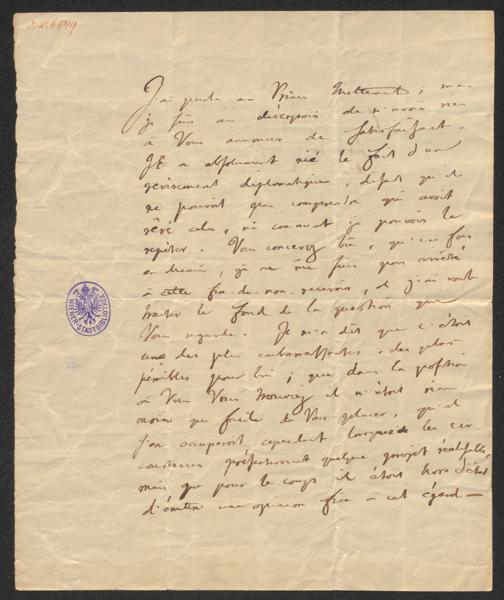 J'ai parlé au Prince Metternich, mais
je suis au désespoir de n'avoir rien
à Vous annoncer de satisfaisant.
Il a absolument nié le fait d'un
diplomatique, disant qu'il
ne pouvait pas comprendre qui avait
rêvé cela, ni comment je pouvois le
répéter. Vous concevez bien, qu'une fois
en chemin, je ne me suis pas arrêté
à cette fin-de-non-recevoir, et j'ai voulu
traiter le fond de la question que
Vous regarde. Il m'a dit que c'étoit
une des plus embarrassantes, des plus
pénibles pour lui; que dans la position
où Vous Vous trouviez il n'étoit rien
moins que facile de Vous placer, qu'il
s'en occuperoit cependant lorsque les cir-
constances présenteroient quelque projet réalisable,
mais que pour le coup il étoit hors d'état
d'émettre une opinion fixe à cet égard.—
WIENER-STADTBIBLIOTHEK